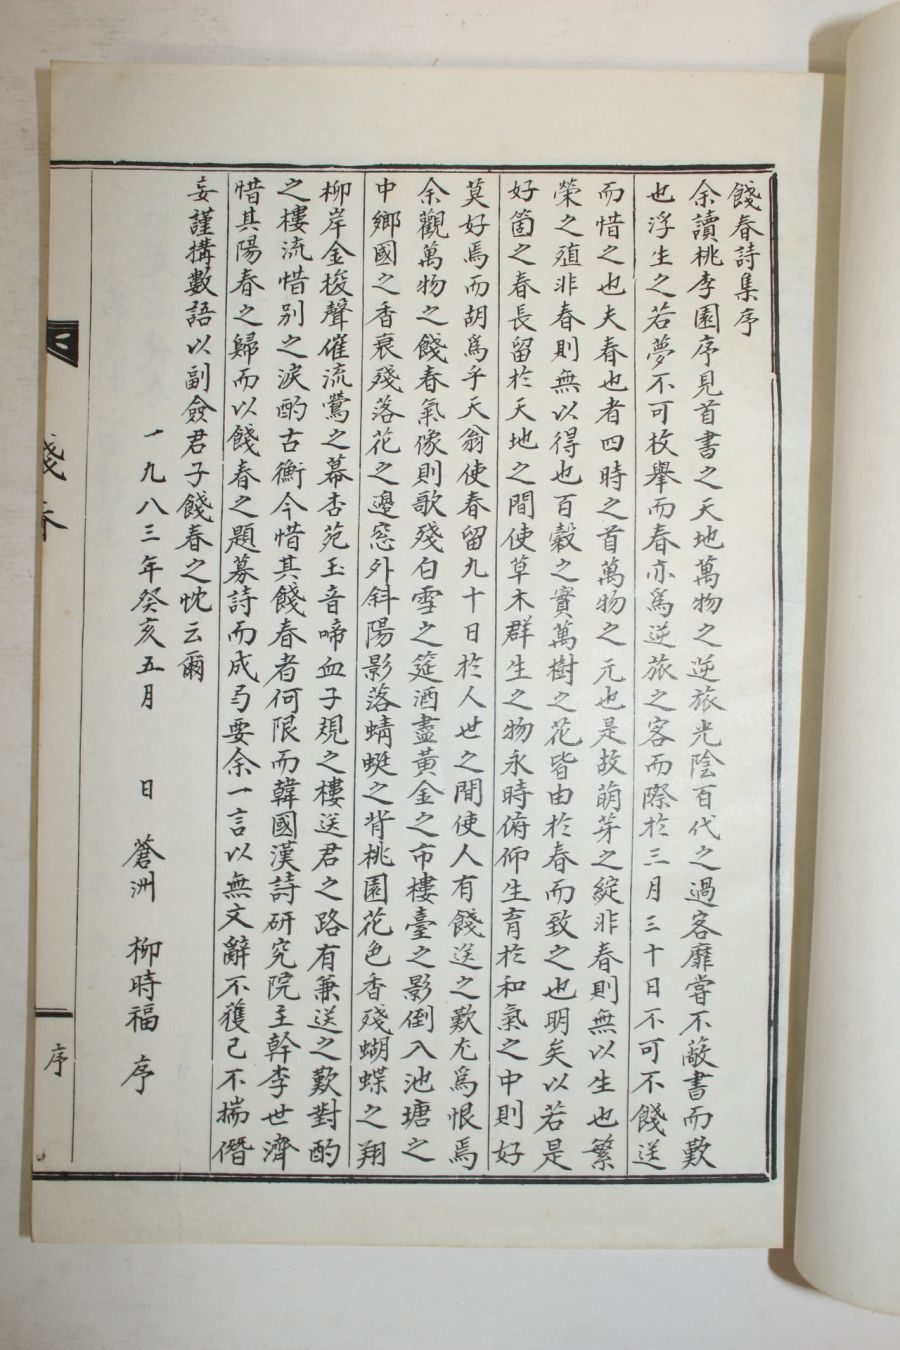 餞春詩集序
余讀桃李園序見首書之天地萬物之逆旅光陰百代之過客靡嘗不蔽書而歎
也浮生之若夢不可枚擧而春亦爲逆旅之客而際於三月三十日不可不餞送
而惜之也夫春也者四時之首萬物之元也是故萌芽之綻非春則無以生也繁
榮之殖非春則無以得也百穀之實萬樹之花皆由於春而致之也明矣以若是
好箇之春長留於天地之間使草木群生之物永時俯仰生育於和氣之中則好
莫好焉而胡爲乎天翁使春留九十日於人世之間使人有餞送之歎尤爲恨焉
余觀萬物之餞春氣像則歌殘白雪之筵酒盡黃金之市樓臺之影倒入池塘之
中鄉國之香衰殘落花之邊窓外斜陽影落蜻蜓之背桃園花色香殘蝴蝶之翔
柳岸金梭聲催流鶯之幕杏苑玉音啼血子規之樓送君之路有兼送之歎對酌
之樓流惜別之淚酌古衡今惜其餞春者何限而韓國漢詩硏究院主幹李世濟
惜其陽春之歸而以餞春之題募詩而成弓要余一言以無文辭不獲已不揣僭
妄謹搆數語以副僉君子餞春之忱云爾
一九八三年癸亥五月 日 蒼洲 柳時福 序
餞春
序